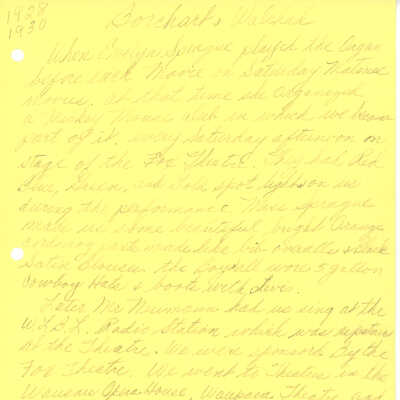 1928
1930
Borchardt
When Evelyn Sprague played the Organ
before each Movie on Saturday Matinee
Movies. At that time she Organized
a Mickey Mouse Club in which we became
part of it, every Saturday afternoon on
stage of the Fox Theatre. They had Red
Blue, Green, and Gold spot lights on us
during the performance. Miss Sprague
made us some beautiful bright Orange
pants made like bib overalls & Black
Satin Blouses the Boys all wore 5 gallon
Cowboy Hats & boots with
Later Mr. Neumann had us sing at the
Radio Station which was upstairs
at the Theatre. We were sponsored By the
Fox Theatre. We went to Theatres in the
Wausau Opera House, Waupaca Theatre, and